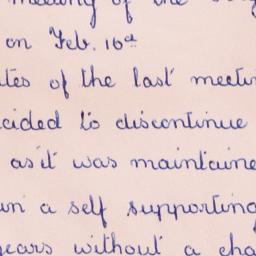 meeting of the
on Feb. 16th
tes of the last meeti
cided to discontinue
as it was maintaine
un a self supporting
years without a cha